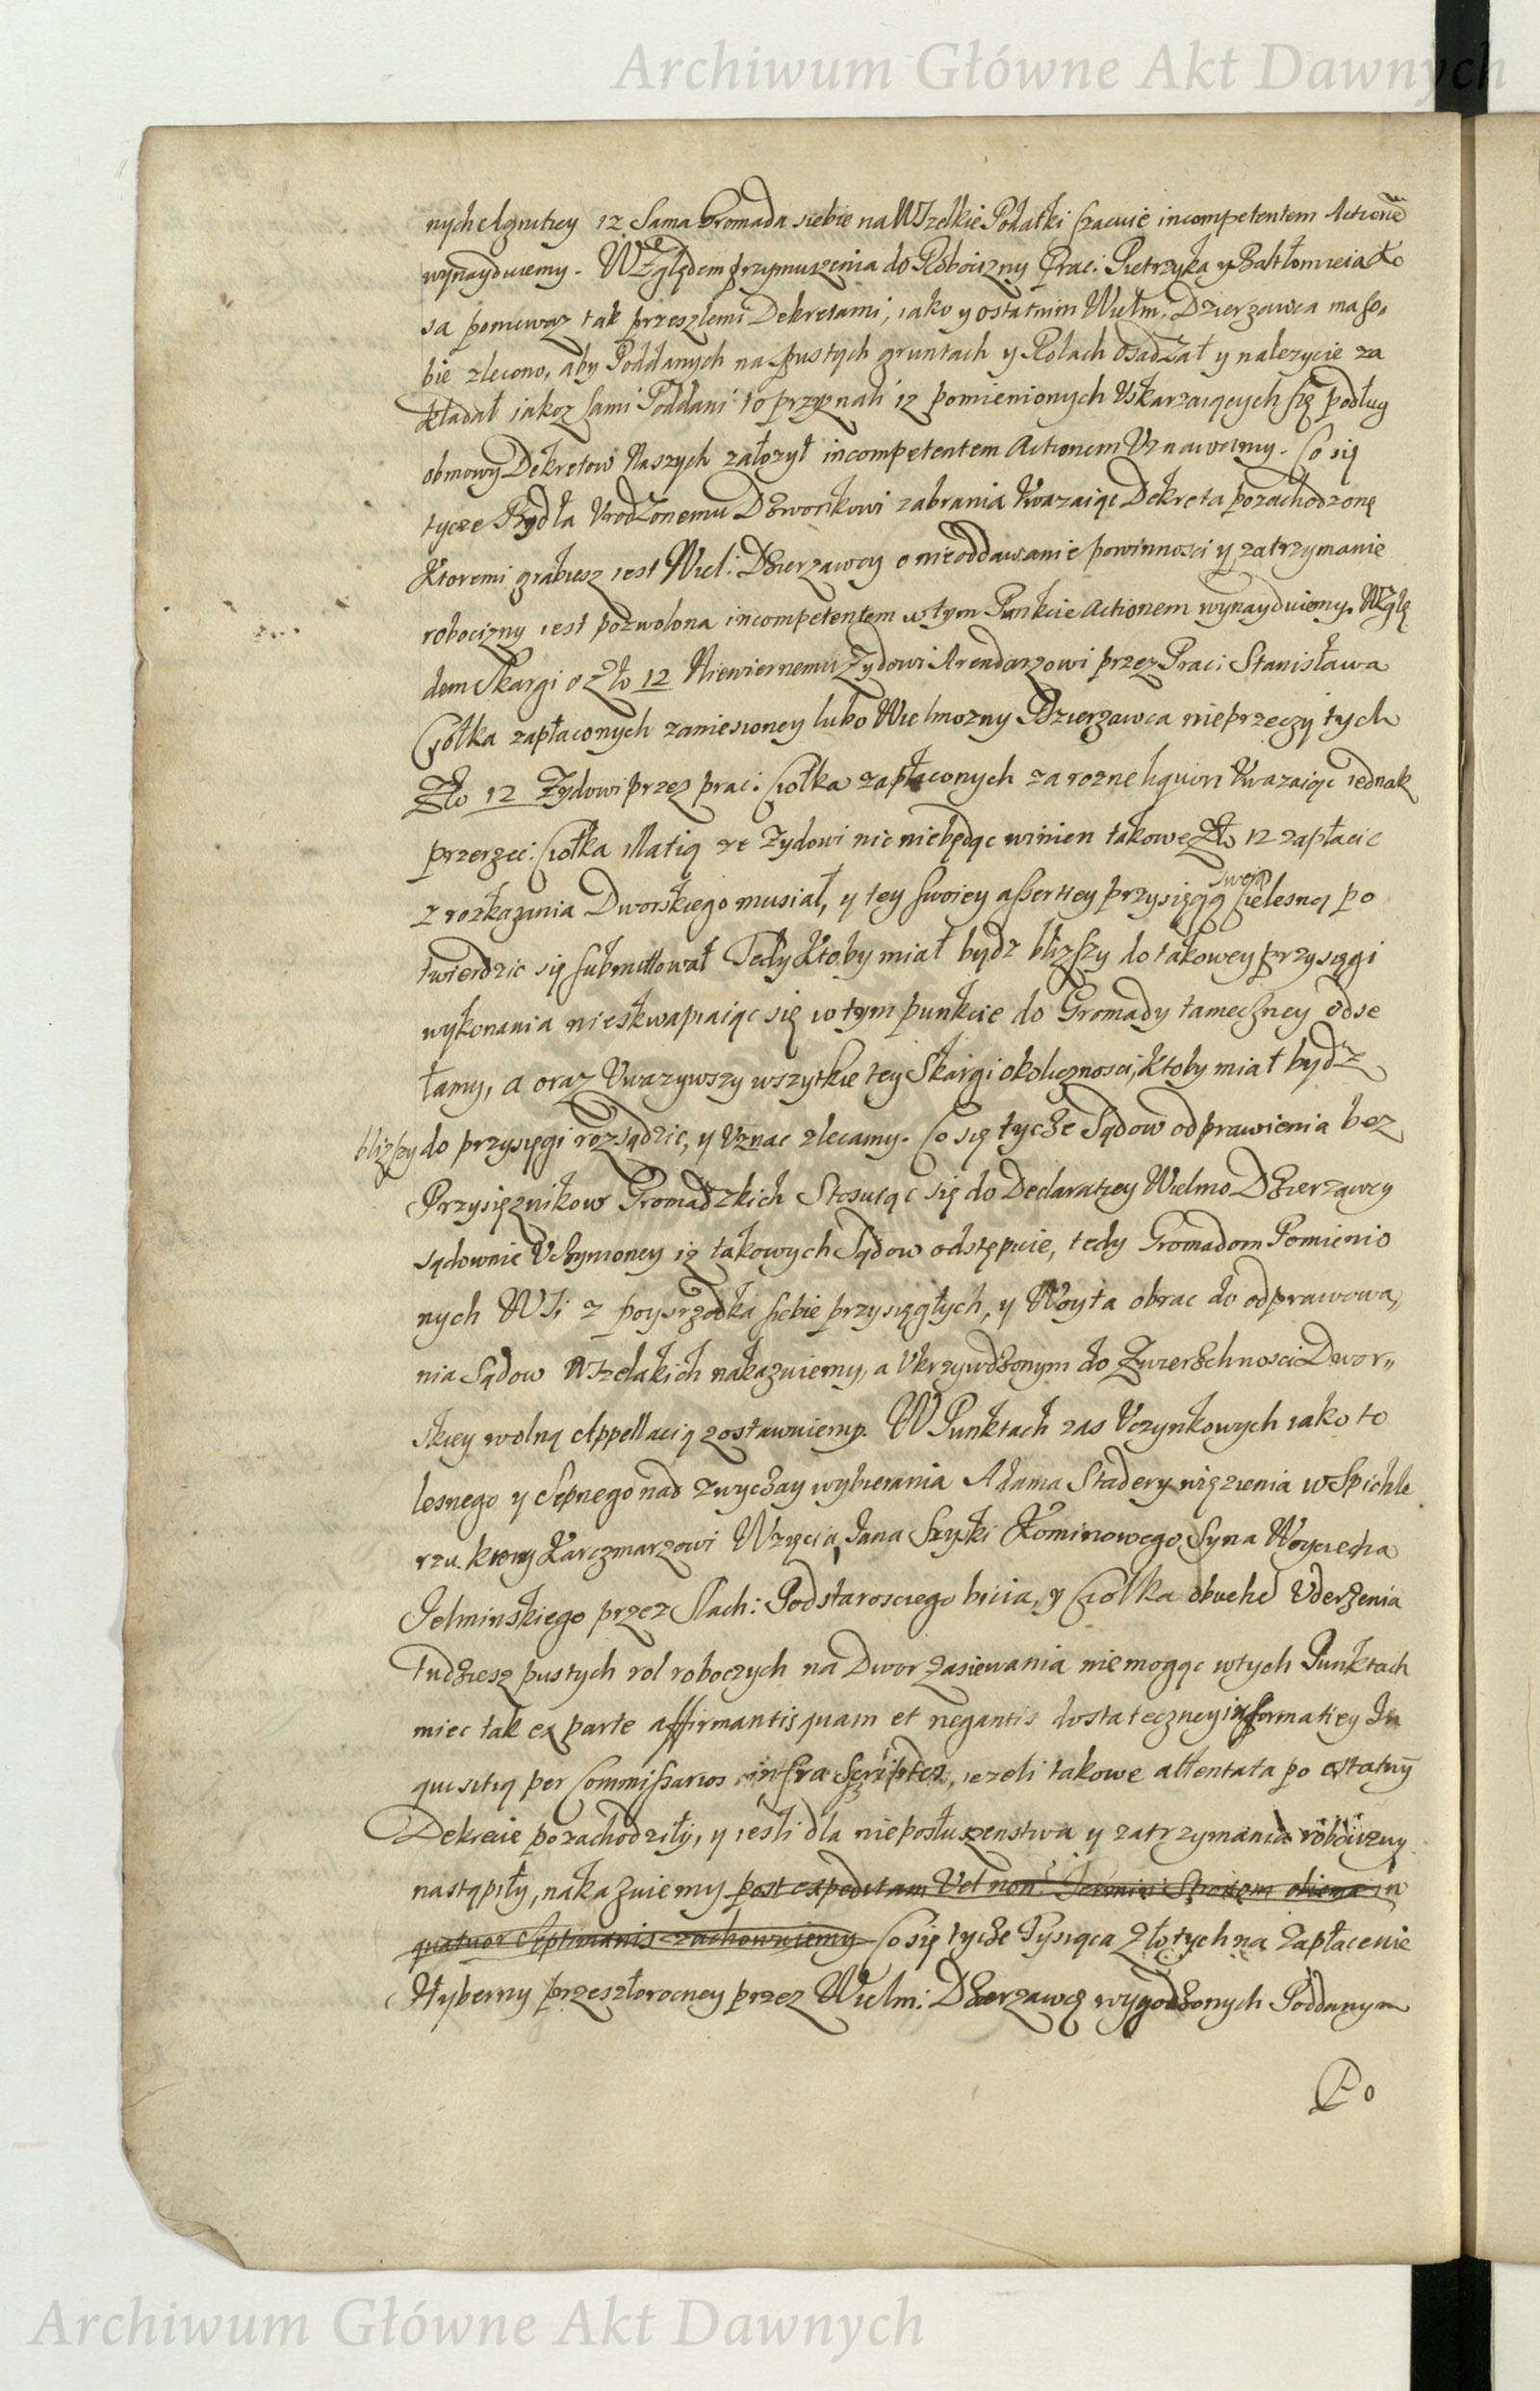 Archiwum Główne Akt Dawnych
nych Agnitiey iz Sama Gromada siebie na Wszelkie Podatki szacuie incompetentem Actionē
wynayduiemy. Względem przymuszenia do Robocizny Prac: Pietrzyka y Bartłomieia
sa poniewaz tak przeszłemi Dekretami, iako y ostatnim Wielm. Dzierzawca ma so,
bie zlecono, aby Poddanych na pustych gruntach y Rolach osadzał y nalezycie za
kładał iakoz sami Poddani to przyznali iz pomienionych Uskarzaiących się podług
obmowy Dekretow Naszych załozył incompetentem Actionem Uznawamy. Co się
tycze Bydła Urodzonemu Dzwonkowi zabrania Uwazaiąc Dekreta pozachodzone
Ktoremi grabiesz iest Wiel: Dzierzawcy o nieoddawanie powinnosci y zatrzymanie
robocizny iest pozwolona incompetentem w tym Punkcie Actionem wynayduiemy. Wzglę
dem Skargi o Zło 12 Niewiernemu Zydowi Arendarzowi przez Prac: Stanisława
Ciołka zapłaconych zaniesioney lubo Wielmozny Dzierzawca nieprzeczy tych
Zło 12 Zydowi przez prac: Ciołka zapłaconych za rozne liquori Uwazaiąc iednak
przerzec: Ciołka illatią ze Zydowi nic niebędąc winien takowe Zło 12 zapłacic
z rozkazania Dworskiego musiał, y tey swoiey assertiey przysięgą swoią Cielesną po
twierdzic się submittował Tedy Ktoby miał bydz blizszy do takowey przysięgi
wykonania nieskwapiaiąc się w tym punkcie do Gromady tameczney odse
łamy, a oraz Uwazywszy wszytkie tey Skargi okolicznosci, Ktoby miał bydz
blizszy do przysięgi rozsądzic, y Uznac zlecamy. Co się tycze Sądow odprawienia bez
Przysięznikow Gromadzkich Stosuiąc się do Declaratiey Wielmo Dzierzawcy
sądownie Uczynioney iz takowych Sądow odstępuie, tedy Gromadom Pomienio
nych Wsi z poysrzodka siebie przysięgłych, y Woyta obrac do odprawowa,
nia Sądow Wszelakich nakazuiemy, a Ukrzywdzonym do Zwierzchnosci Dwor,,
skiey wolną Appellacią zostawuiemy. W Punktach zas Uczynkowych iako to
lesnego y Sepnego nad zwyczay wybierania Adama Stadery więzienia w Spichle
rzu, krowy Karczmarzowi Wzięcia, Jana Szyski Kominowego, Syna Woyciecha
Jelminskiego przez Slach: Podstarosciego bicia, y Ciołka obuchē Uderzenia
tudziesz pustych rol roboczych na Dwor zasiewania niemogąc w tych Punktach
miec tak ex parte affirmantis quam et negantis dostateczney informatiey In
quisitią per Commissarios infra Scriptos, iezeli takowe attentata po ostatnỹ
Dekrecie pozachodziły, y iesli dla nieposłuszenstwa y zatrzymania robocizny
nastąpiły, nakazuiemy post expeditam Vel non in
quatuor Septimanis zachowuiemy Co się tycze Tysiąca Złotych na zapłacenie
Hyberny przeszłorocney przez Wielm: Dzierzawcę wygodzonych Poddanym
Po
Archiwum Główne Akt Dawnych